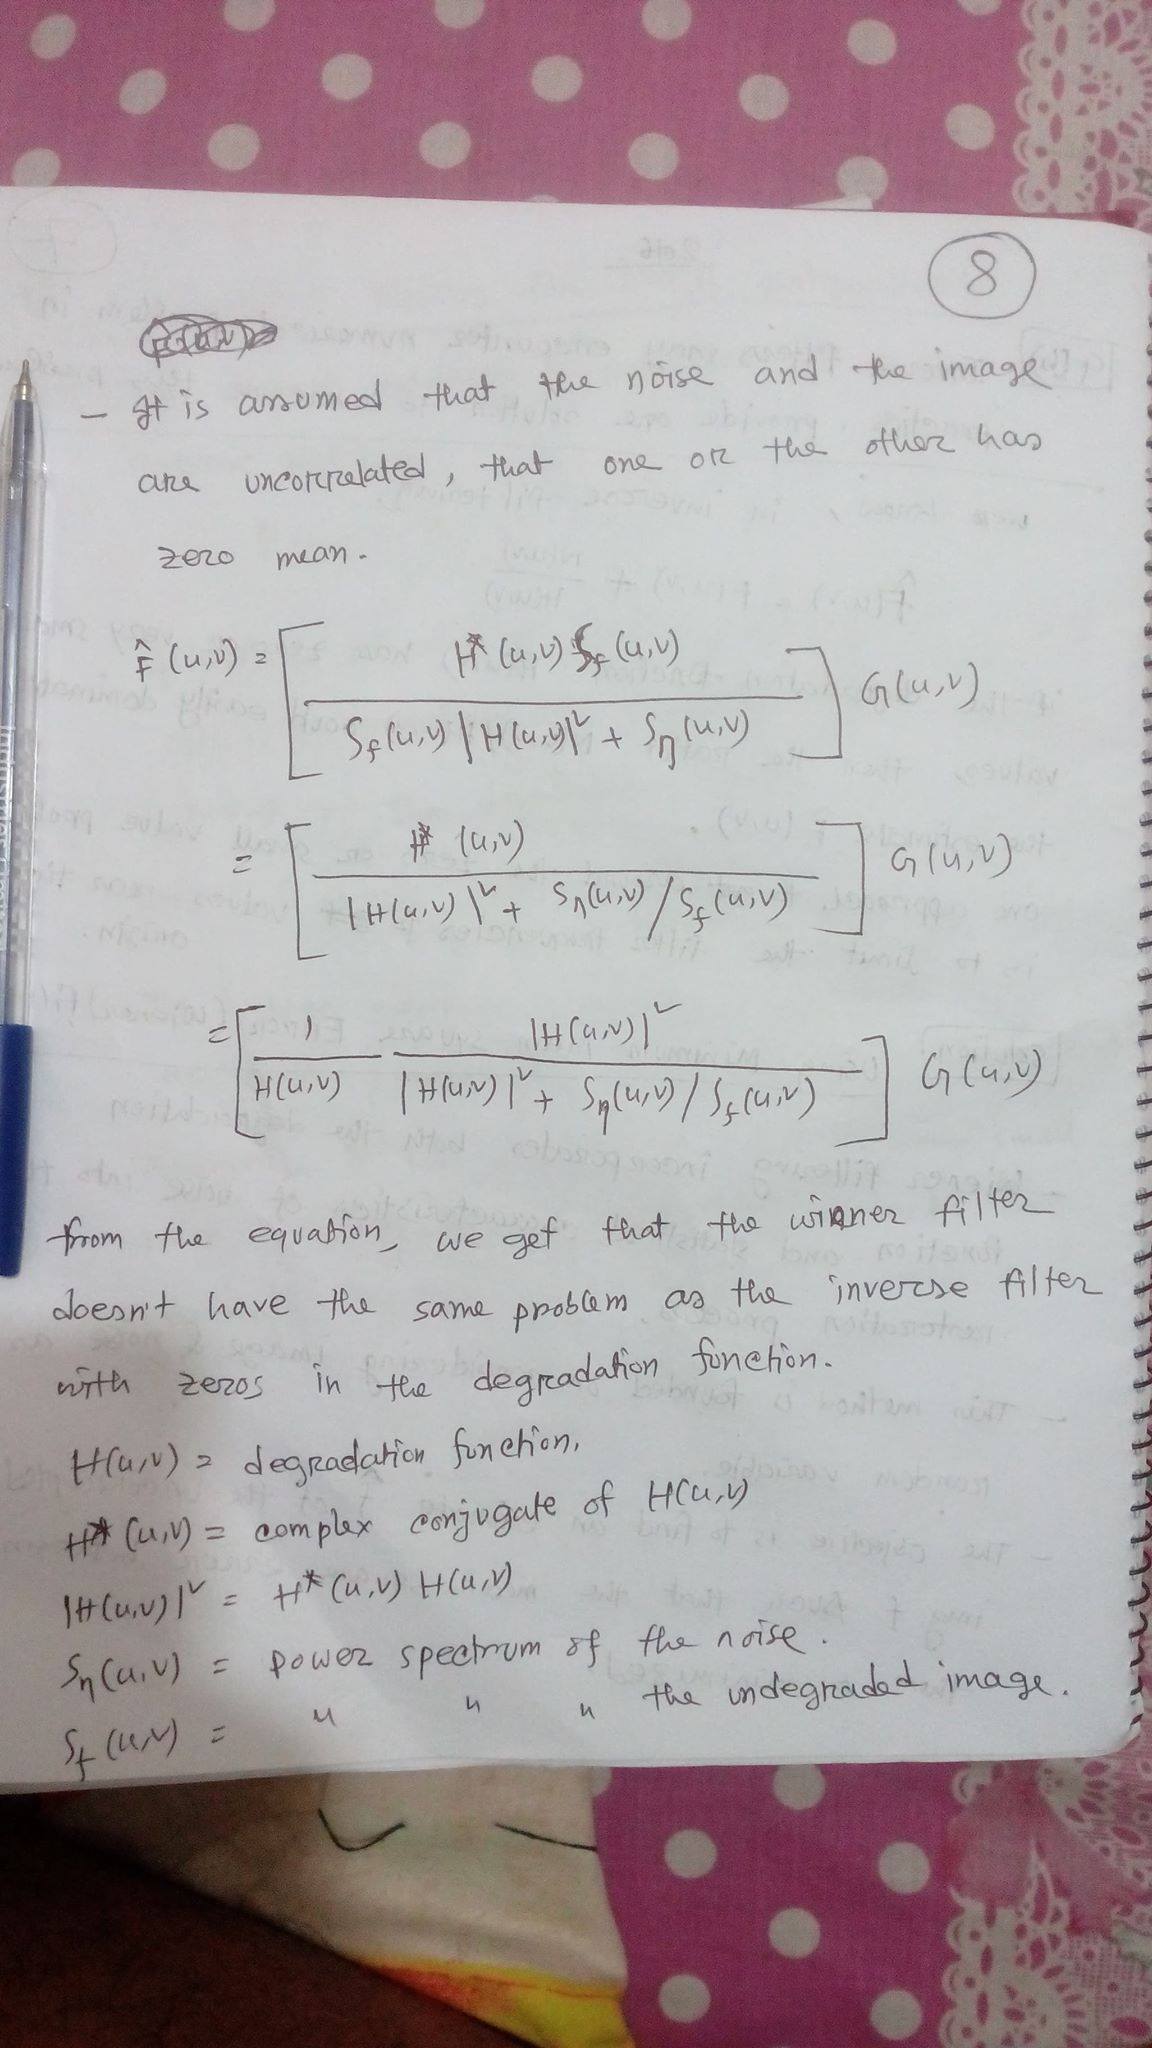 8
- It is assumed that the noise and the image
are uncorrelated, that one or the other has
zero mean.
F̂(u,v) = [ H*(u,v) S_f(u,v) / S_f(u,v) |H(u,v)|² + S_η(u,v) ] G(u,v)
= [ H*(u,v) / |H(u,v)|² + S_η(u,v) / S_f(u,v) ] G(u,v)
= [ 1 / H(u,v) |H(u,v)|² / |H(u,v)|² + S_η(u,v) / S_f(u,v) ] G(u,v)
from the equation, we get that the winner filter
doesn't have the same problem as the inverse filter
with zeros in the degradation function.
H(u,v) = degradation function,
H*(u,v) = complex conjugate of H(u,v)
|H(u,v)|² = H*(u,v) H(u,v)
S_η(u,v) = power spectrum of the noise.
S_f(u,v) = " " " the undegraded image.